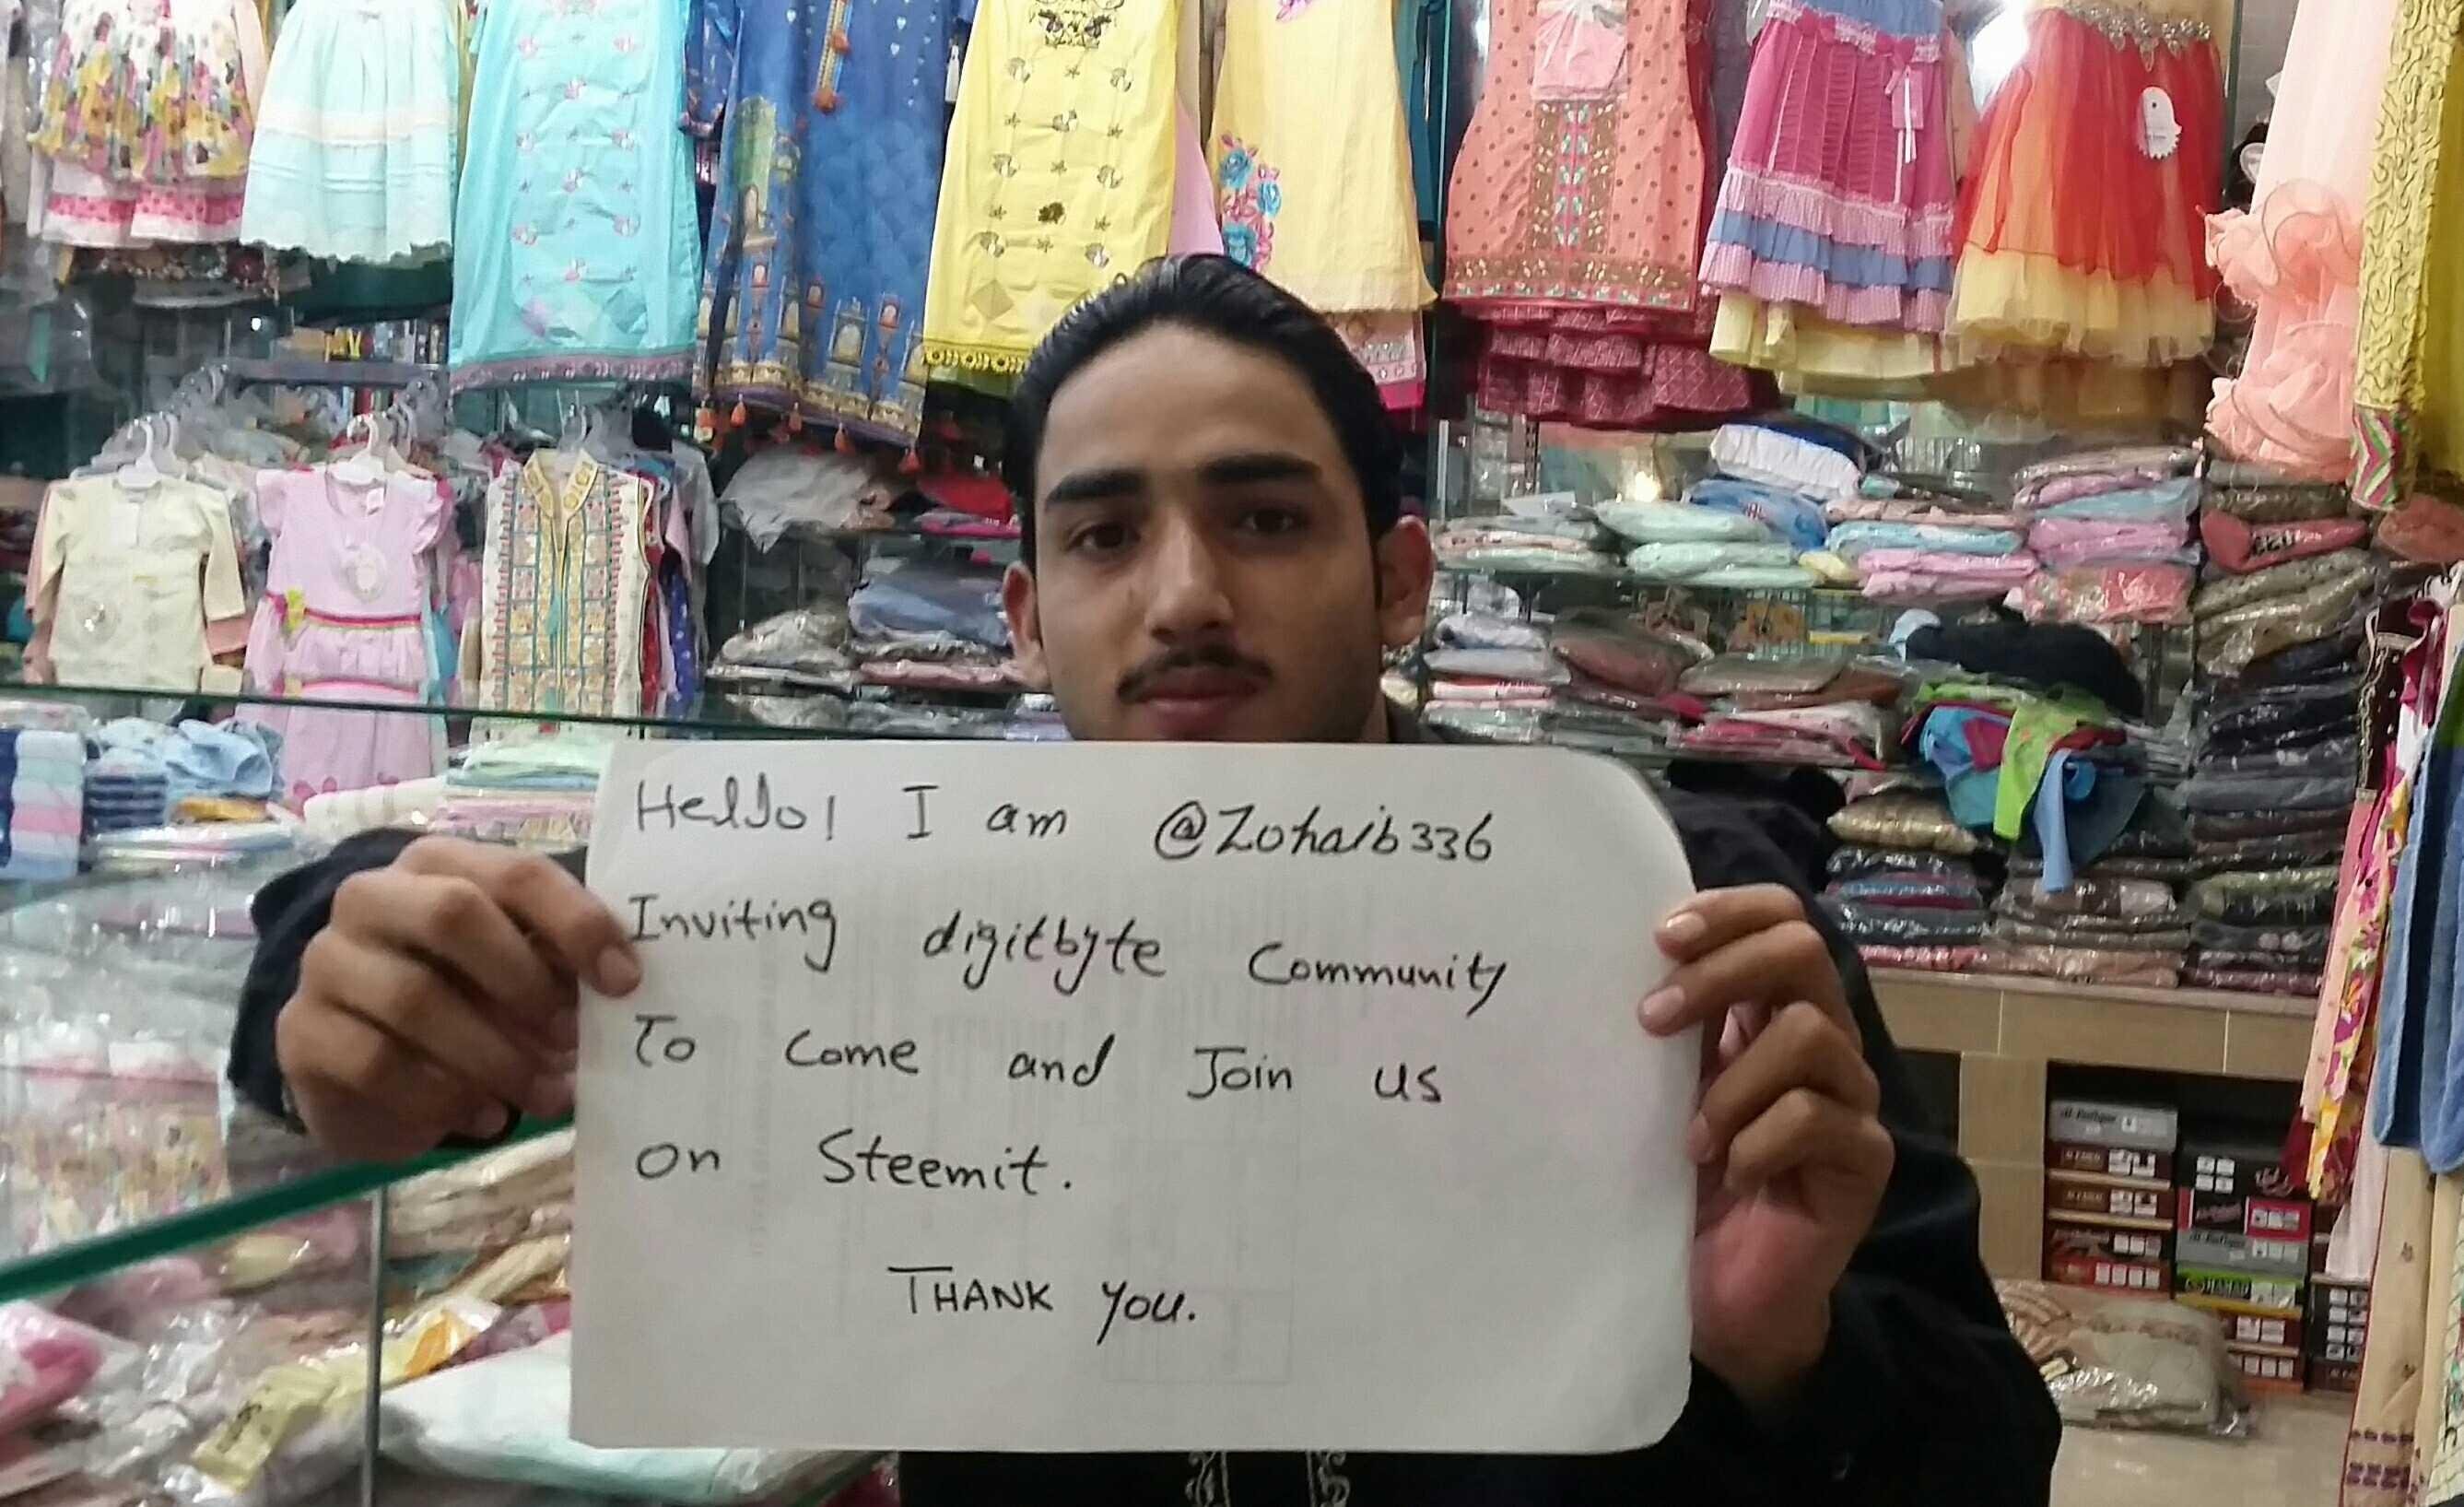 Hello! I am @Zohaib336
Inviting digitbyte Community
To Come and Join us
on Steemit.
THANK YOU.